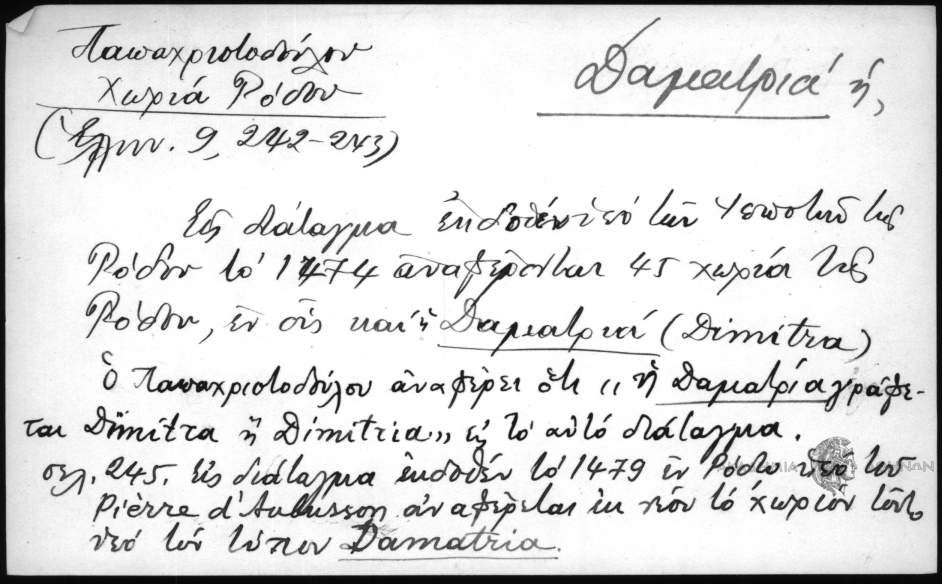 Παπαχριστοδούλου
Χωριά Ρόδου
(Ἑλλην. 9, 242-243)
Δαματριά ἡ,
Εἰς διάταγμα ἐκδοθὲν ὑπὸ τῶν Ἱπποτῶν τῆς
Ρόδου τὸ 1474 ἀναφέρονται 45 χωριά τῆς
Ρόδου, ἐν οἷς καὶ ἡ Δαματριά (Dimitra)
ὁ Παπαχριστοδούλου ἀναφέρει ὅτι "ἡ Δαματρία γράφε-
ται Dimitra ἢ Dimitria" εἰς τὸ αὐτό διάταγμα.
σελ. 245. Εἰς διάταγμα ἐκδοθέν τὸ 1479 ἐν Ρόδῳ ὑπὸ τοῦ
Pierre d'Aubusson ἀναφέρεται ἐκ νέου τὸ χωρίον τοῦτο
ὑπὸ τὸν τύπον Damatria.